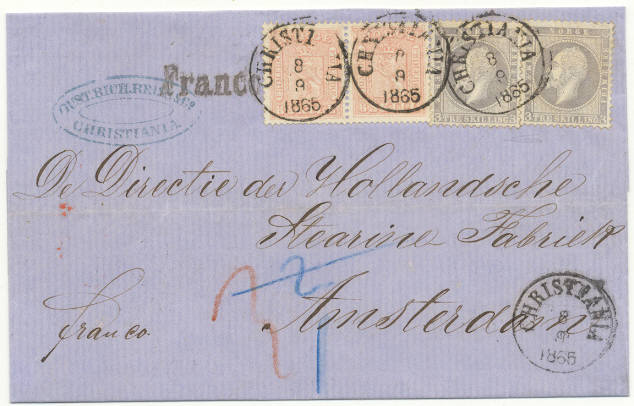 CHRISTIANIA
8
9
1865
CHRISTIANIA
8
9
1865
CHRISTIANIA
8
9
1865
NORGE
3 TRE SKILLING 3
3 TRE SKILLING 3
Franco
CHRISTIANIA
De Directie der Hollandsche
Stearine Fabriek
Amsterdam
franco
2
CHRISTIANIA
8
9
1865